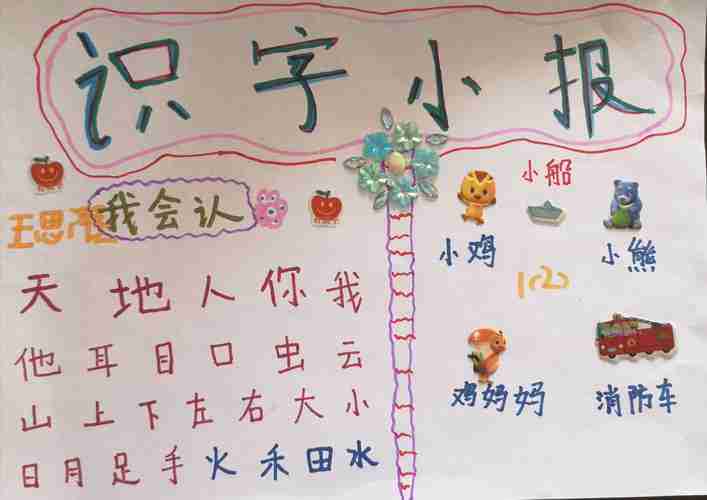 识字小报
我会认
天地人你我
他耳目口虫云
山上下左右大小
日月足手火禾田水
小船
小鸡
小熊
鸡妈妈
消防车